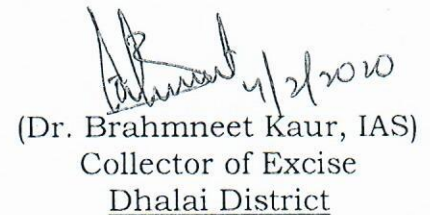 4/2/2020
(Dr. Brahmneet Kaur, IAS)
Collector of Excise
Dhalai District